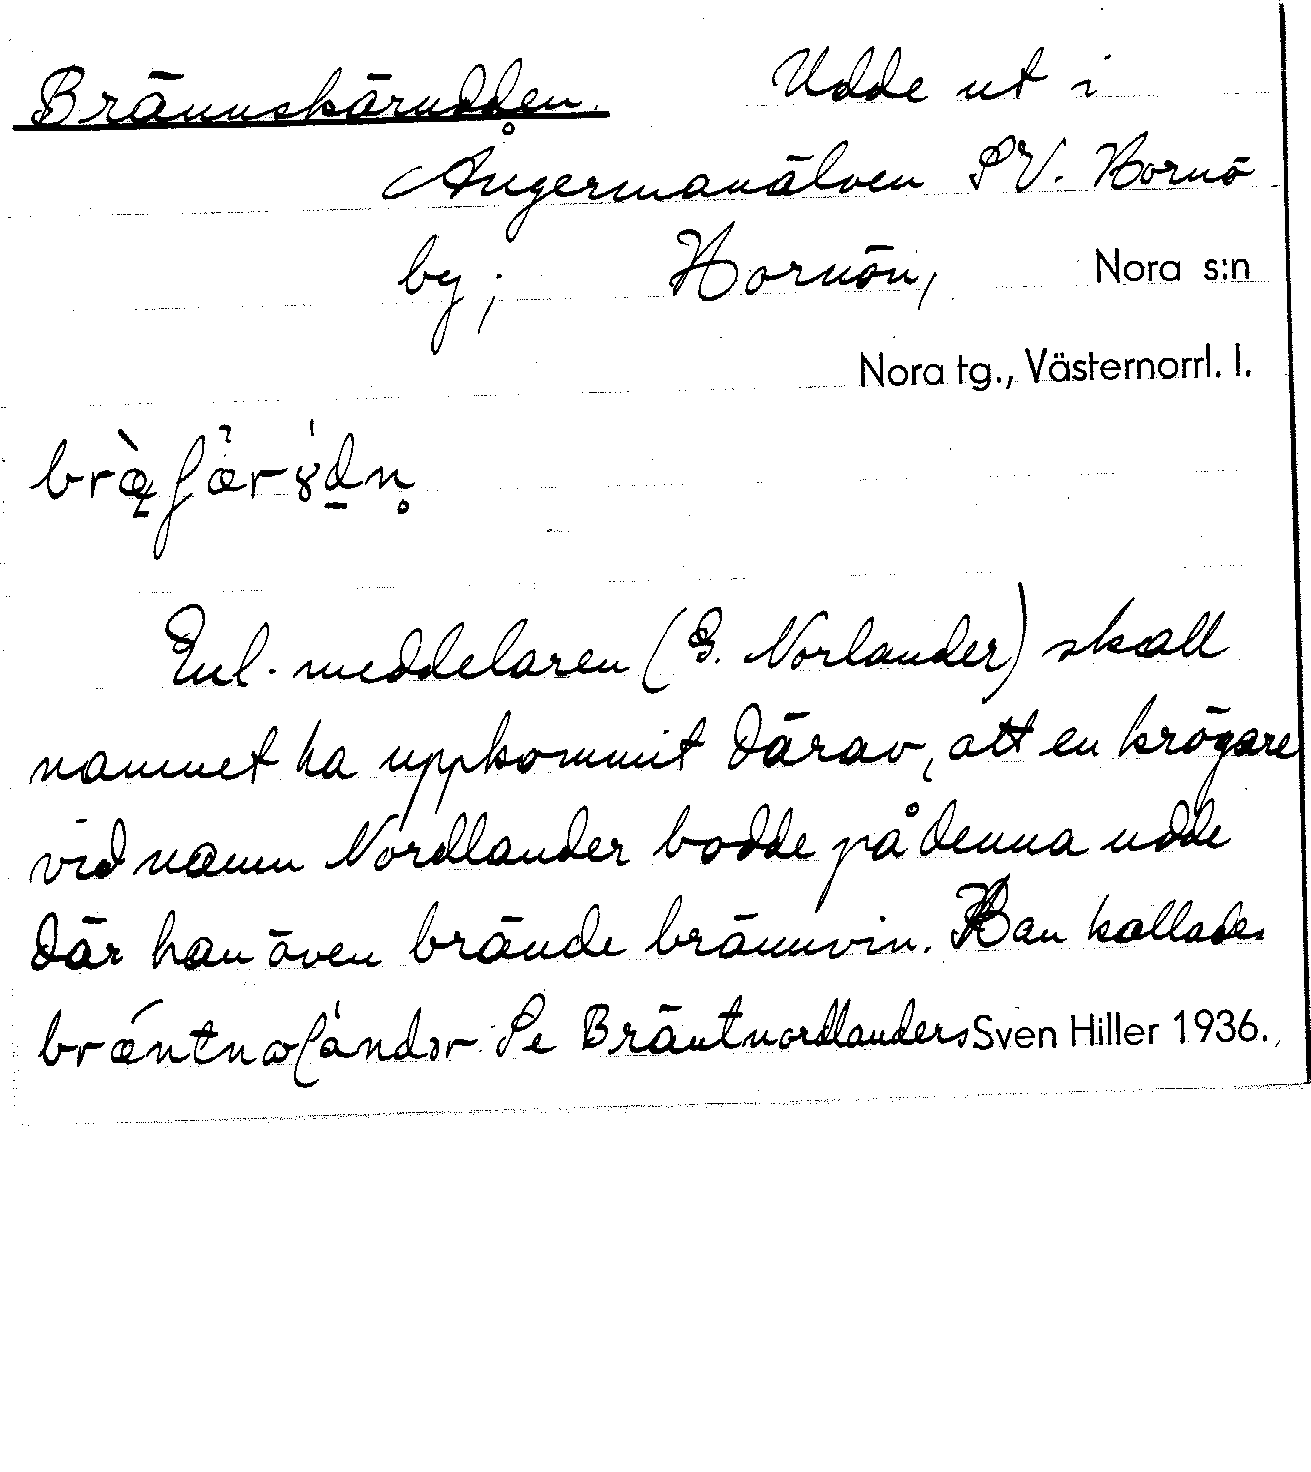 Brännskärudden. Udde ut i
Ångermanälven SV. Hornö
by; Hornön, Nora s:n
Nora tg., Västernorrl. l.
Enl. meddelaren (G. Norlander) skall
namnet ha uppkommit därav, att en krögare
vid namn Nordlander bodde på denna udde
där han även brände brännvin. Han kallades
Se Bräntnordlanders Sven Hiller 1936.